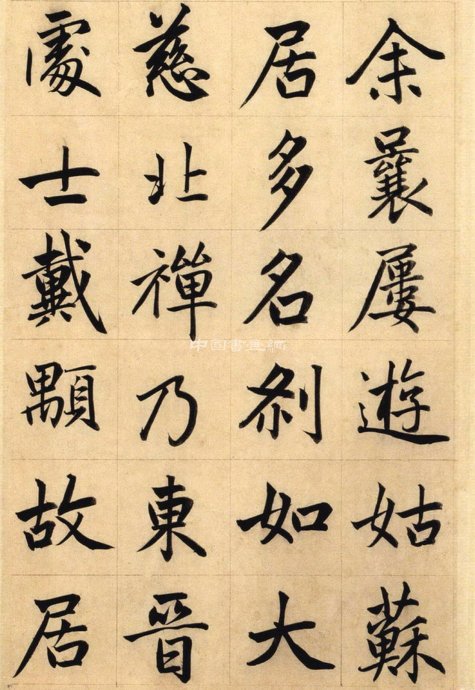 余曩屢遊姑蘇
居多名剎如大
慈北禪乃東晉
處士戴顒故居
中国書畫網